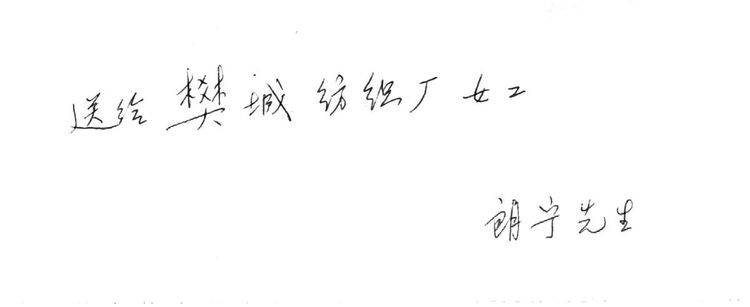 送给樊城纺织厂女工
朗宁先生